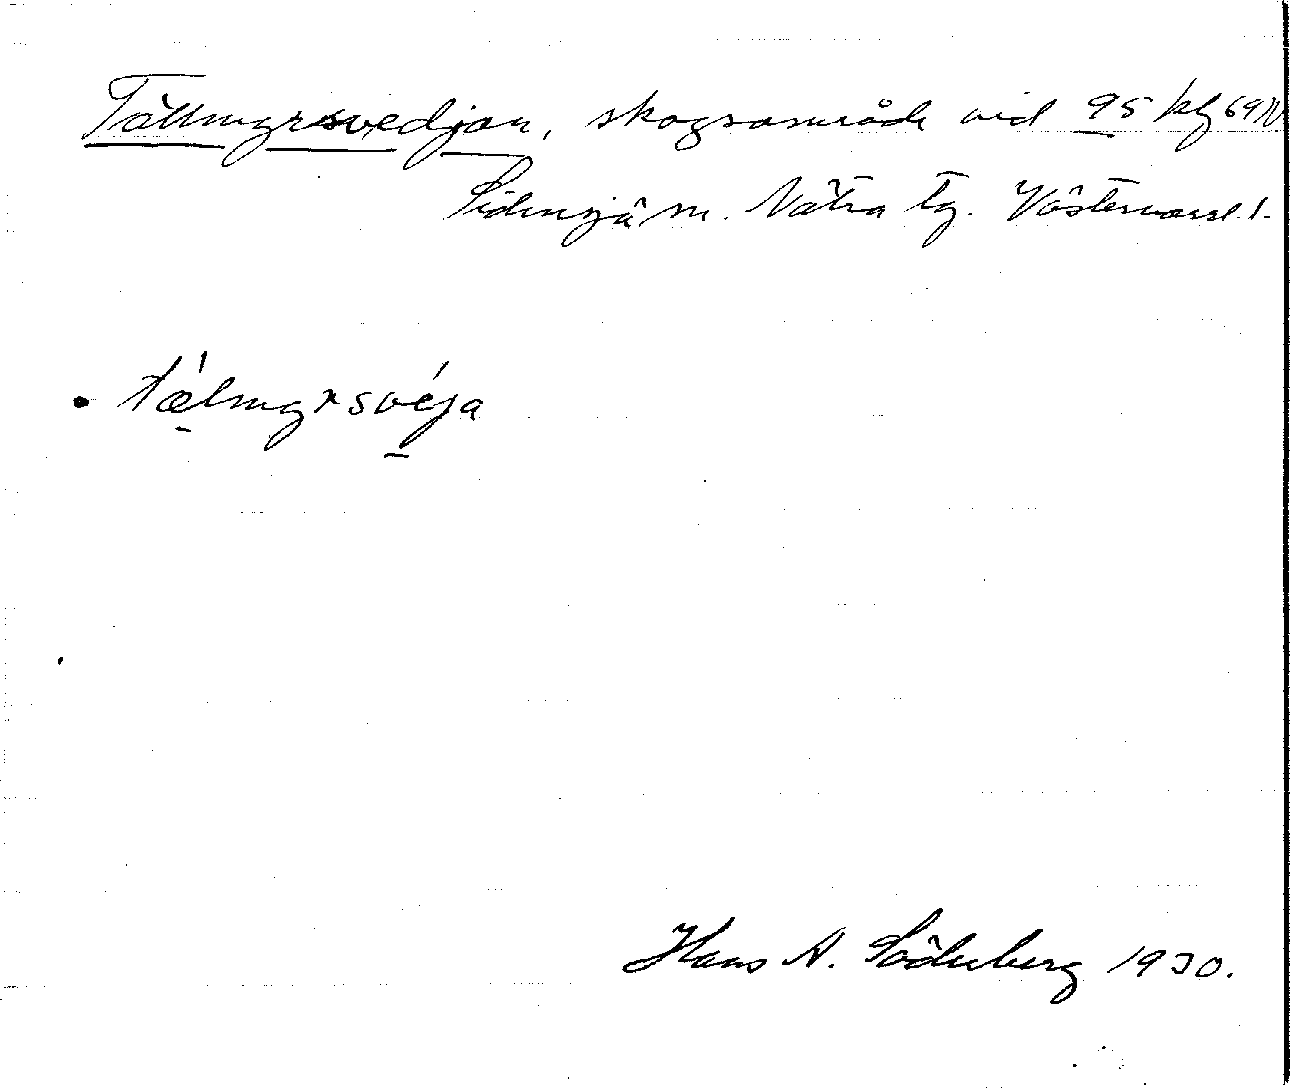 Tällmyrsvedjan, skogsområde vid 95 klf 69 NV
Sidensjö sn. Nätra tg. Västernorrl. l.
tælmyrsvéja
Hans A. Söderberg 1930.